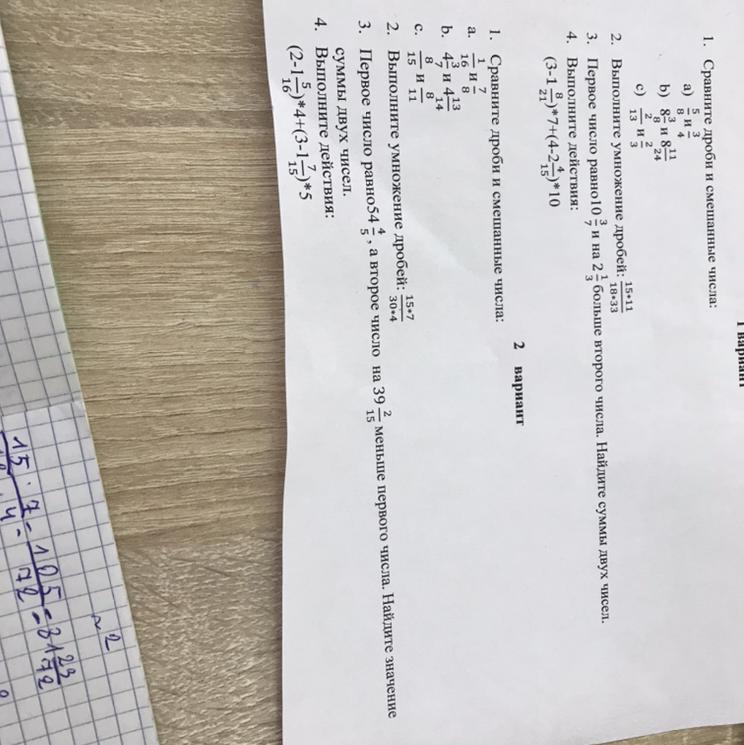 1 вариант
1. Сравните дроби и смешанные числа:
a) 5/8 и 3/4
b) 8 3/8 и 8 11/24
c) 2/13 и 2/3
2. Выполните умножение дробей: 15*11/18*33
3. Первое число равно10 3/7 и на 2 1/3 больше второго числа. Найдите суммы двух чисел.
4. Выполните действия:
(3-1 8/21)*7+(4-2 4/15)*10
2 вариант
1. Сравните дроби и смешанные числа:
a. 1/16 и 7/8
b. 4 3/7 и 4 13/14
c. 8/15 и 8/11
2. Выполните умножение дробей: 15*7/30*4
3. Первое число равно54 4/5, а второе число на 39 2/15 меньше первого числа. Найдите значение
суммы двух чисел.
4. Выполните действия:
(2-1 5/16)*4+(3-1 7/15)*5
~2